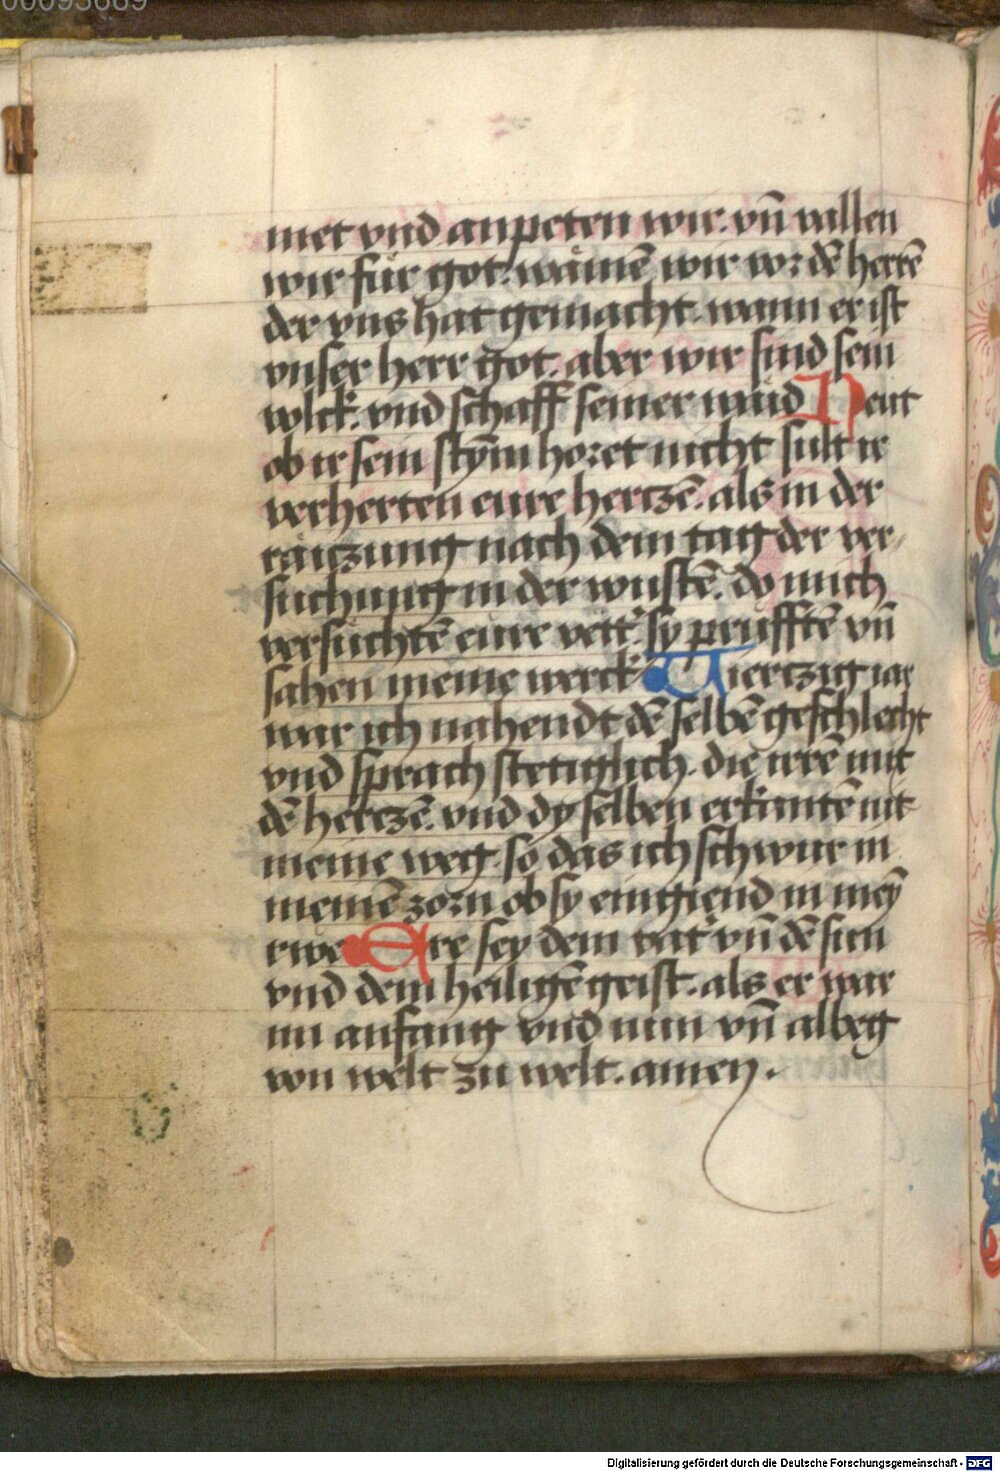 00093689
met vnd anpeten wir. vn̄ vallen
wir für got. wainē wir vor dē herrē
der vns hat gemacht. wann er ist
vnser herr got. aber wir sind sein
volck. vnd schaff seiner waid Heut
ob ir sein stȳm horet nicht sult ir
verherten eure hertzē. als in der
raitzung nach dem tag der ver-
suchung in der wustē. do mich
versuchtē eure vett'. sy prufftē vn̄
sahen meine werck Viertzig iar
war ich nahendt dē selbē geschlecht
vnd sprach stetiglich. die irrē mit
dē hertzē. vnd dy selben erkantē nit
meine weg. so das ich schwur in
meinē zorn ob sy eingiend in meȳ
rwe Ere sey dem vat' vn̄ dē sun
vnd dem heiligē geist. als er war
im anfang vnd nun vn̄ albeg
von welt zu welt. amen.
Digitalisierung gefördert durch die Deutsche Forschungsgemeinschaft - DFG